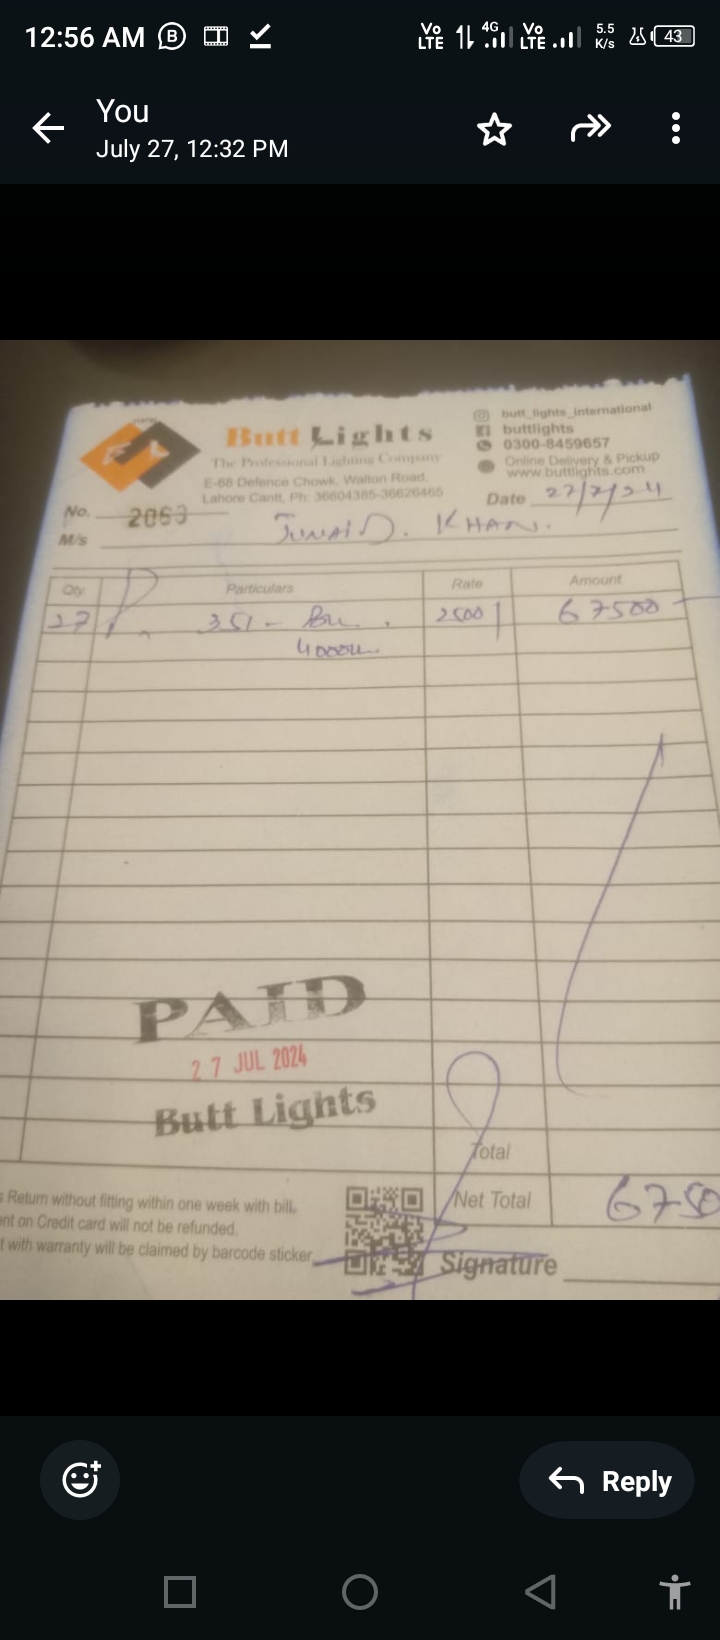 12:56 AM B Vo LTE 4G Vo LTE 5.5 K/s 43
You
July 27, 12:32 PM
Butt Lights
The Professional Lighting Company
E-68 Defence Chowk, Walton Road,
Lahore Cantt. Ph: 36604385-36626465
butt_lights_international
buttlights
0300-8459657
Online Delivery & Pickup
www.buttlights.com
No. 2063
Date 27/7/24
M/s JUNAID. KHAN.
Qty. Particulars Rate Amount
27 351 - 2500 67500
PAID
27 JUL 2024
Butt Lights
Total
Net Total 6750
Return without fitting within one week with bill.
nt on Credit card will not be refunded.
t with warranty will be claimed by barcode sticker
Signature
Reply